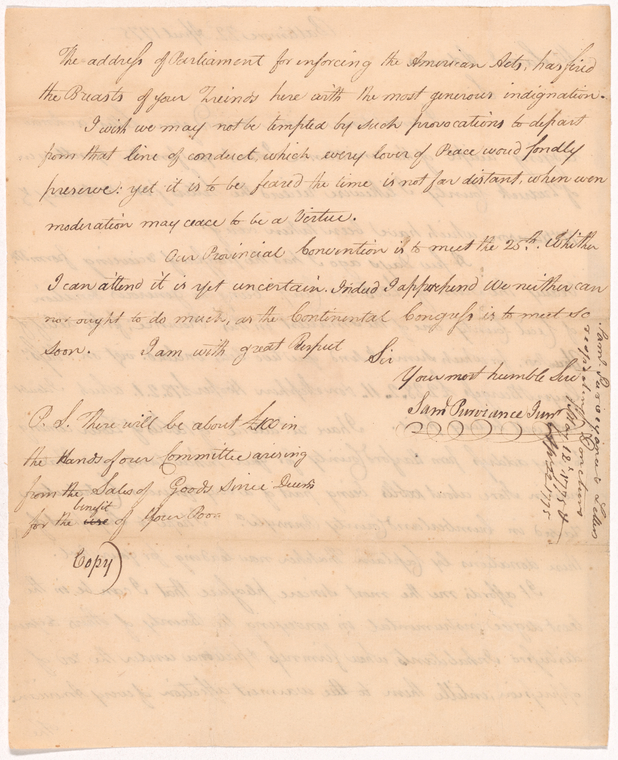 The address of Parliament for enforcing the American Acts, has fired
the Breasts of your Freinds here with the most generous indignation.
I wish we may not be tempted by such provocations to depart
from that line of conduct, which every lover of Peace woud fondly
preserve: yet it is to be feared the time is not far distant, when even
moderation may ceace to be a Virtue.
Our Provincial Convention is to meet the 25th. Whither
I can attend it is yet uncertain. Indeed I apprehend we neither can
nor ought to do much, as the Continental Congress is to meet so
soon. I am with great Respect
Sir
Your most humble Serv
Saml Purviance Junr
P. S. There will be about £100 in
the Hands of our Committee arising
from the Sales of Goods since Decmr
for the benefit of your Poor
Copy
Saml Purviance's Letter
respecting Donations
May 12th 1775 &
Apl 22 1775